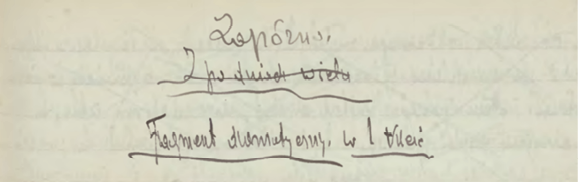 Zapóźno.
I po dniach wielu
Fragment dramatyczny. w 1 akcie